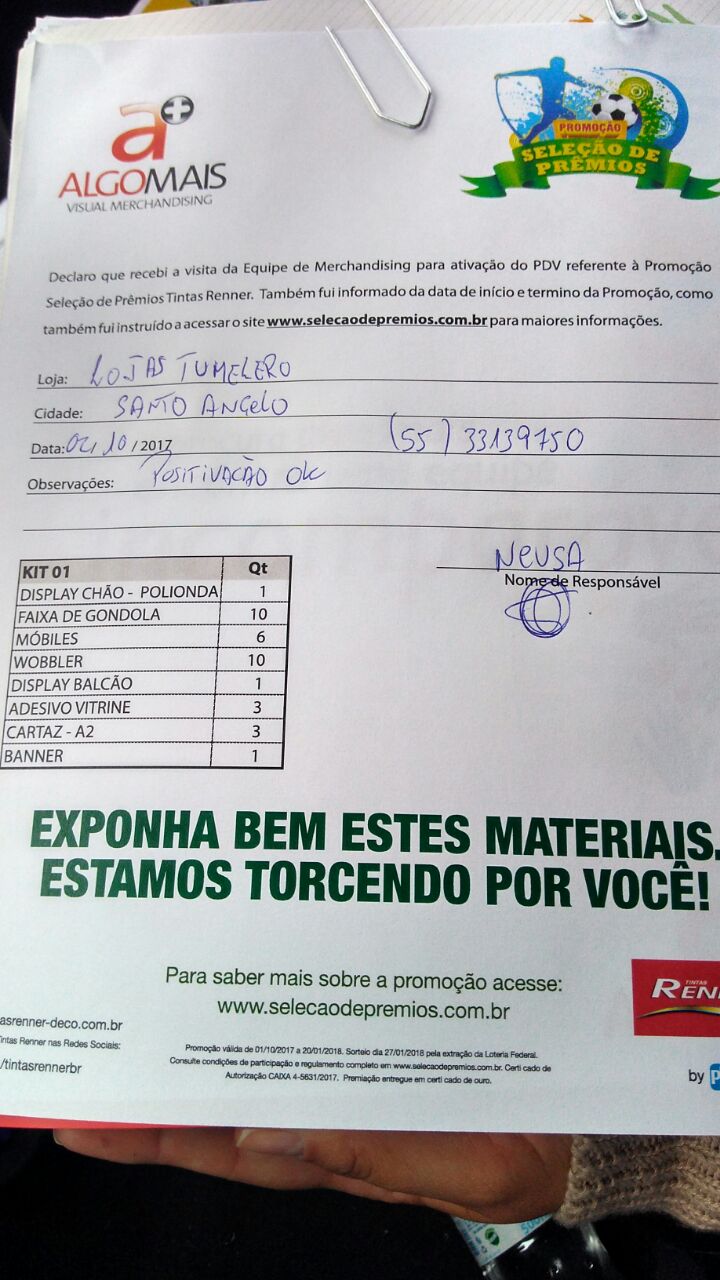 a+
ALGOMAIS
VISUAL MERCHANDISING
PROMOÇÃO
SELEÇÃO DE
PRÊMIOS
Declaro que recebi a visita da Equipe de Merchandising para ativação do PDV referente à Promoção
Seleção de Prêmios Tintas Renner. Também fui informado da data de início e termino da Promoção, como
também fui instruído a acessar o site www.selecaodepremios.com.br para maiores informações.
Loja: LOJAS TUMELERO
Cidade: SANTO ANGELO
Data: 02/10/2017 (55) 33139750
Observações: POSITIVAÇÃO OK
NEUSA
Nome de Responsável
KIT 01 Qt
DISPLAY CHÃO - POLIONDA 1
FAIXA DE GONDOLA 10
MÓBILES 6
WOBBLER 10
DISPLAY BALCÃO 1
ADESIVO VITRINE 3
CARTAZ - A2 3
BANNER 1
EXPONHA BEM ESTES MATERIAIS.
ESTAMOS TORCENDO POR VOCÊ!
Para saber mais sobre a promoção acesse:
www.selecaodepremios.com.br
TINTAS
REN
asrenner-deco.com.br
Tintas Renner nas Redes Sociais:
/tintasrennerbr
Promoção válida de 01/10/2017 a 20/01/2018. Sorteio dia 27/01/2018 pela extração da Loteria Federal.
Consulte condições de participação e regulamento completo em www.selecaodepremios.com.br. Certi cado de
Autorização CAIXA 4-5631/2017. Premiação entregue em certi cado de ouro.
by P